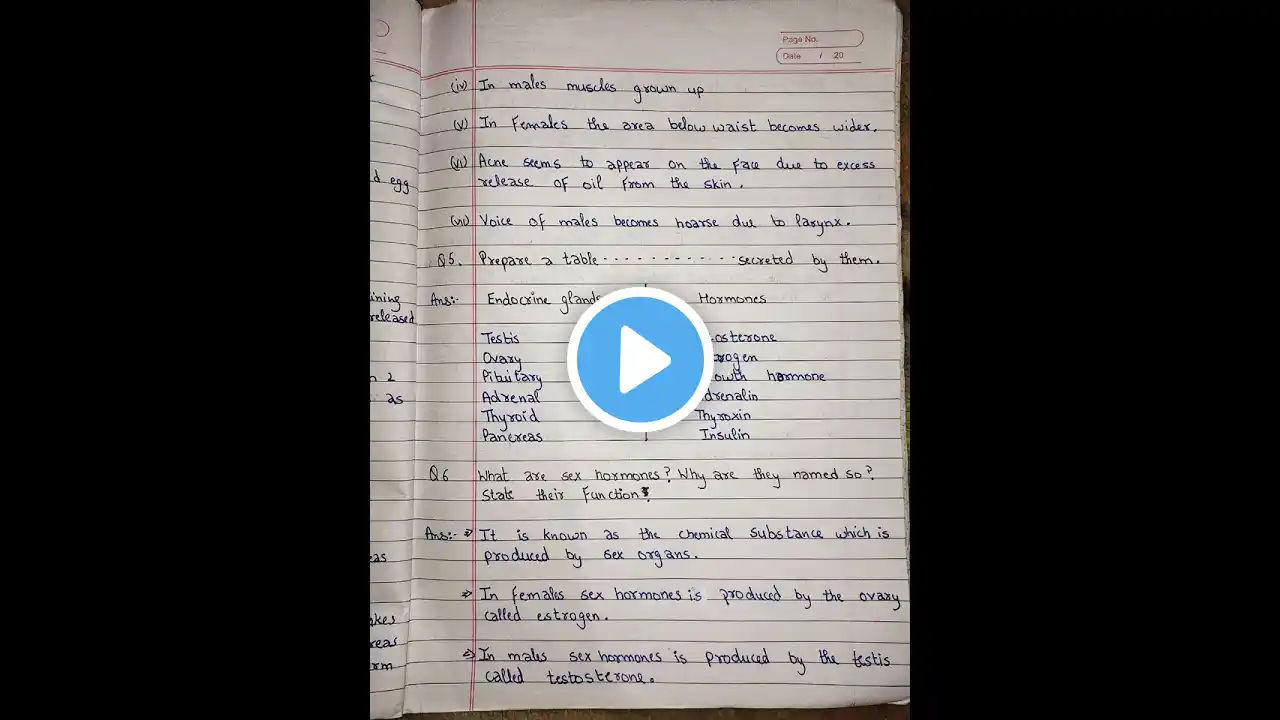 Page No.
Date / 20
(iv) In males muscles grown up
(v) In Females the area below waist becomes wider.
(vi) Acne seems to appear on the face due to excess
release of oil from the skin.
d egg
(vii) Voice of males becomes hoarse due to larynx.
Q5. Prepare a table ............ secreted by them.
ining
Ans:- Endocrine glands Hormones
released
Testis osterone
Ovary rogen
Pibuitary owth hormone
n 2
as
Adrenal drenalin
Thyroid Thyroxin
Pancreas Insulin
Q6 What are sex hormones? Why are they named so?
State their Function?
Ans:- It is known as the chemical substance which is
produced by sex organs.
eas
In females sex hormones is produced by the ovary
called estrogen.
akes
reas
In males sex hormones is produced by the testis
rm
called testosterone.